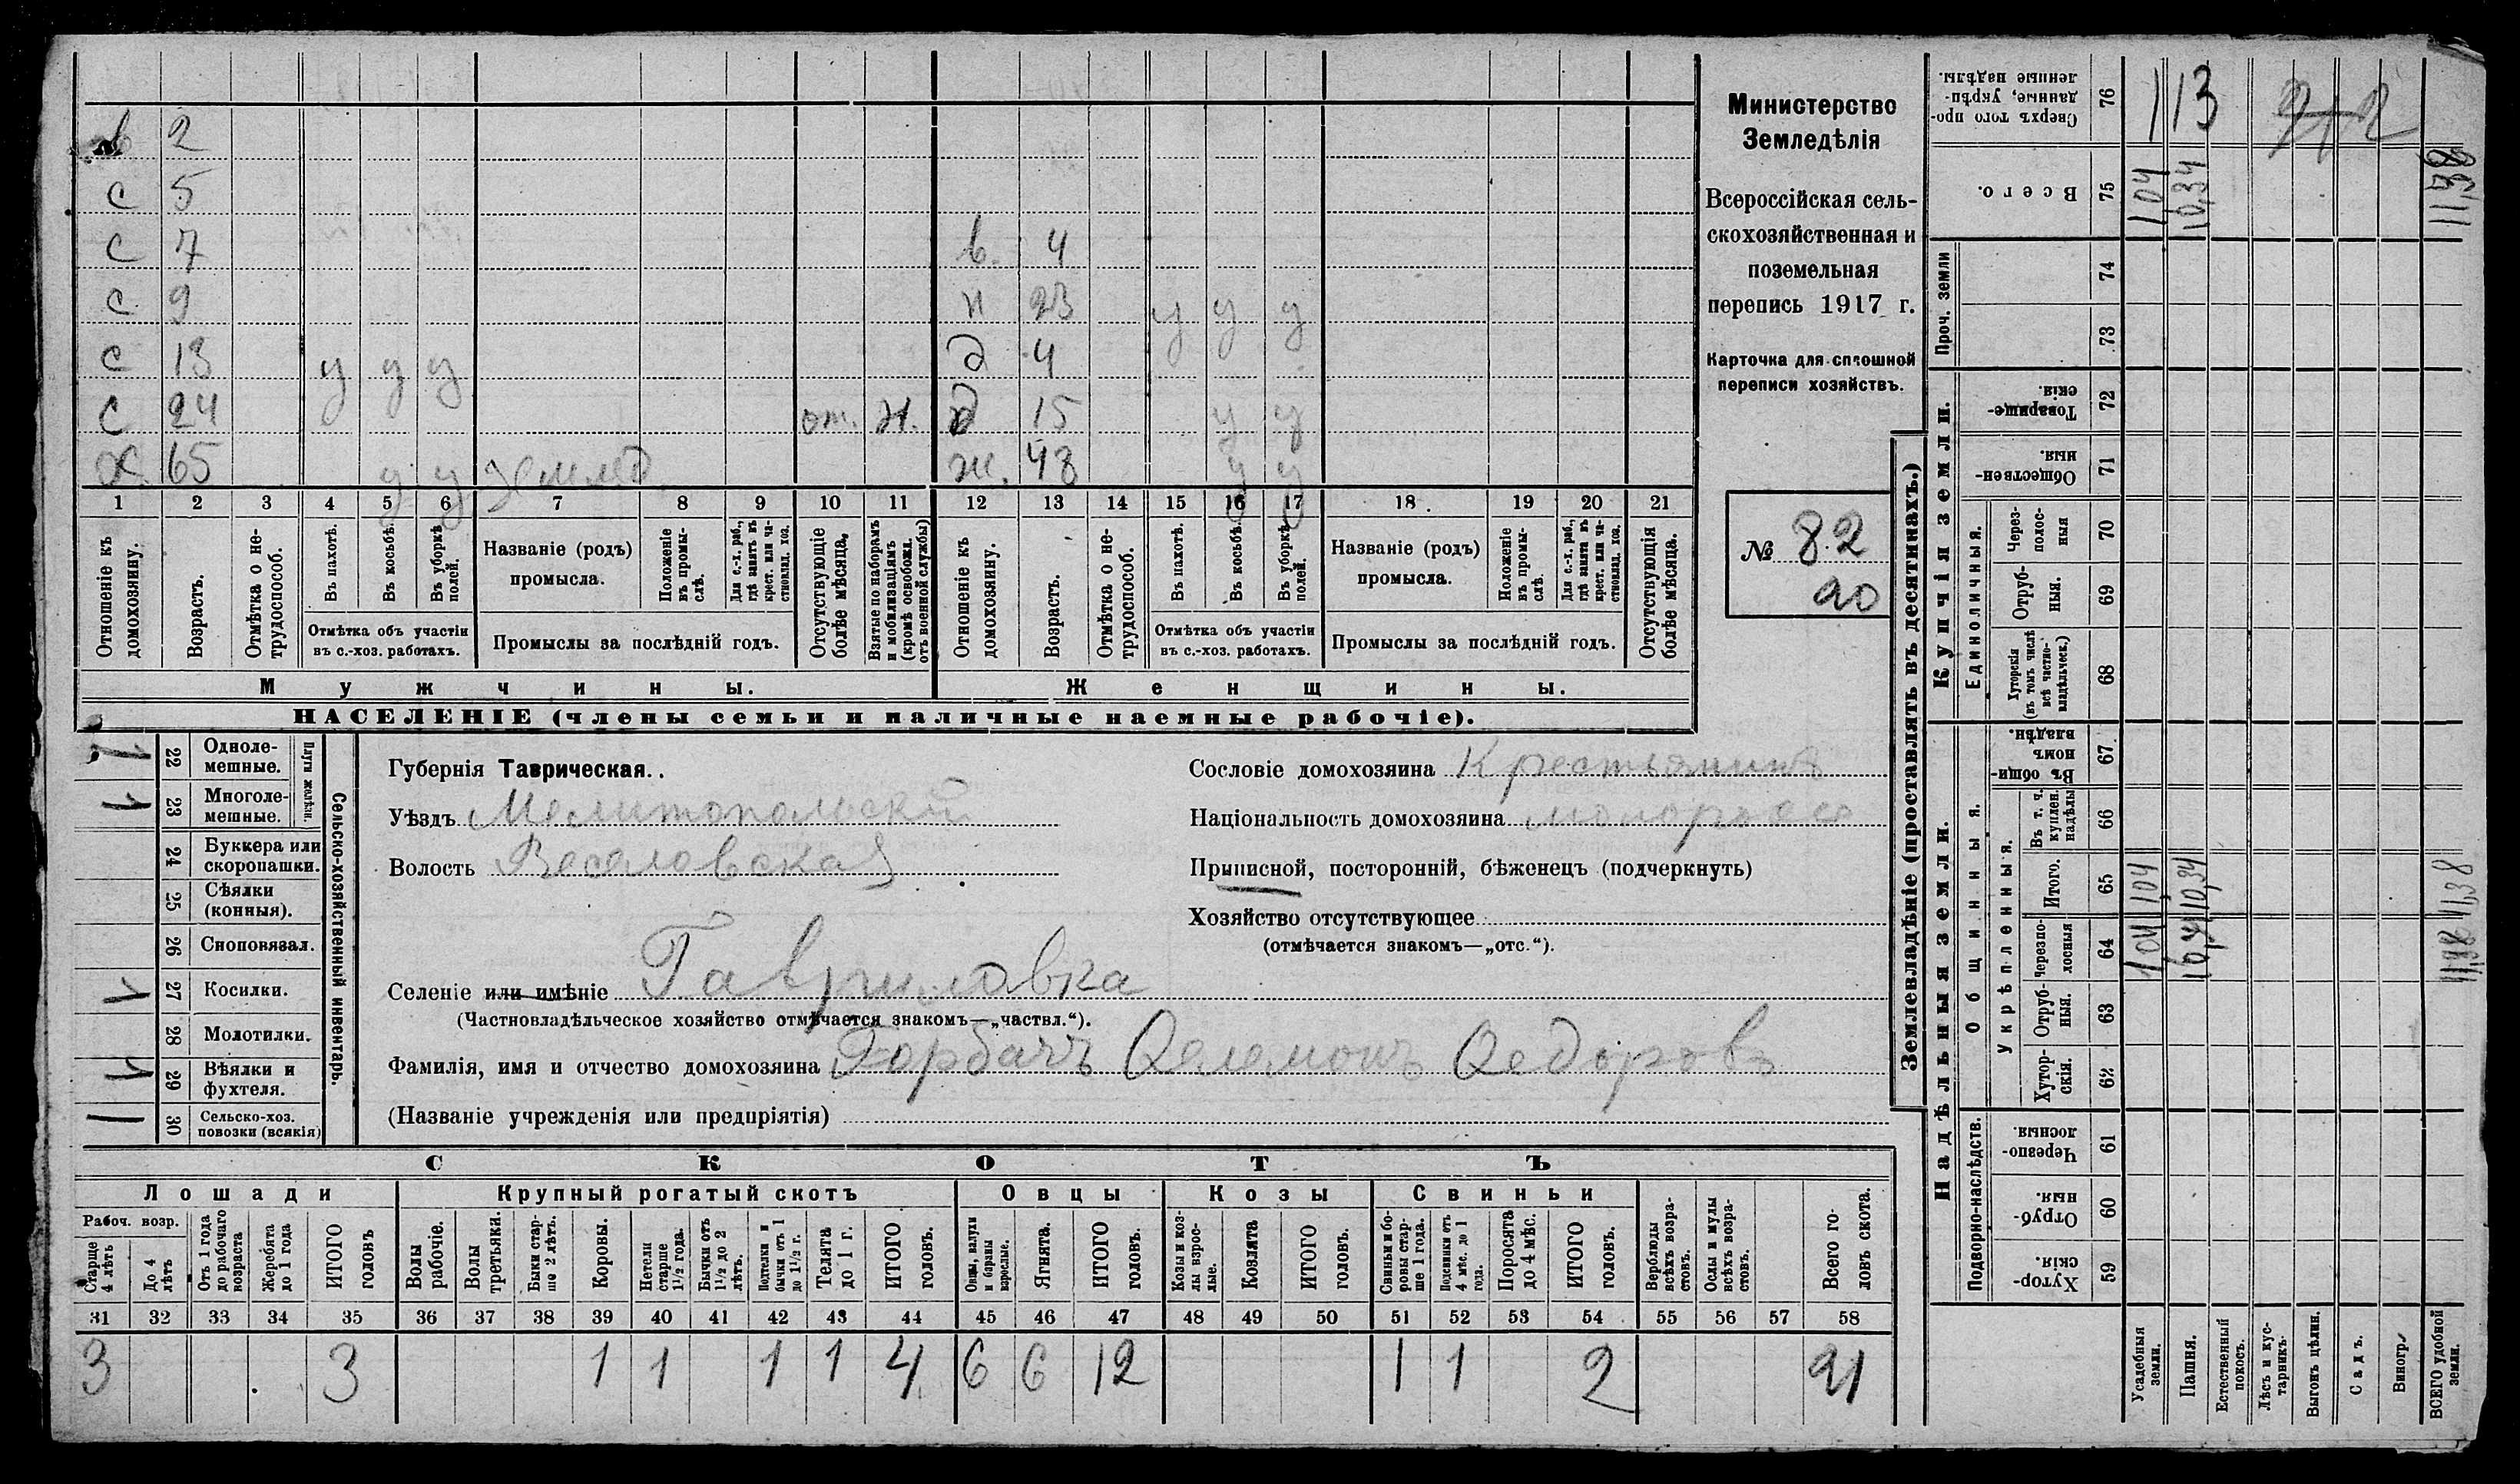 в 2
с 5
с 7 в. 4
с 9 н 23 у у у
с 13 у у у д 4
с 24 от. д 15 у у
х 65 у у землед ж. 48 у у
1 2 3 4 5 6 7 8 9 10 11 12 13 14 15 16 17 18. 19 20 21
Отношеніе къ домохозяину.
Возрастъ.
Отмѣтка о не-трудоспособ.
Въ пахотѣ.
Въ косьбѣ.
Въ уборкѣ полей.
Отмѣтка объ участіи
въ с.-хоз. работахъ.
Названіе (родъ)
промысла.
Положеніе въ промы-слѣ.
Для с.-х. раб., гдѣ занятъ въ крест. или ча-стновлад. хоз.
Промыслы за послѣдній годъ.
Отсутствующіе болѣе мѣсяца.
Взятые по наборамъ и мобилизаціямъ (кромѣ освобожд. отъ военной службы)
Отношеніе къ домохозяину.
Возрастъ.
Отмѣтка о не-трудоспособ.
Въ пахотѣ.
Въ косьбѣ.
Въ уборкѣ полей.
Отмѣтка объ участіи
въ с.-хоз. работахъ.
Названіе (родъ)
промысла.
Положеніе въ промы-слѣ.
Для с.-х. раб., гдѣ занята въ крест. или ча-стновлад. хоз.
Промыслы за послѣдній годъ.
Отсутствующія болѣе мѣсяца.
Мужчины.
Женщины.
НАСЕЛЕНІЕ (члены семьи и наличные наемные рабочіе).
Министерство
Земледѣлія
Всероссійская сель-
скохозяйственная и
поземельная
перепись 1917 г.
Карточка для сплошной
переписи хозяйствъ.
№ 82
20
Сельско-хозяйственный инвентарь.
Плуги желѣзн.
1 22 Одноле-мешные.
1 23 Многоле-мешные.
24 Буккера или скоропашки.
25 Сѣялки (конныя).
26 Сноповязал.
1 27 Косилки.
28 Молотилки.
1 29 Вѣялки и фухтеля.
1 30 Сельско-хоз. повозки (всякія)
Губернія Таврическая..
Уѣздъ Мелитопольскій
Волость Веселовская
Сословіе домохозяина Крестьянинъ
Національность домохозяина малороссъ
Приписной, посторонній, бѣженецъ (подчеркнуть)
Хозяйство отсутствующее
(отмѣчается знакомъ—„отс.“).
Селеніе или имѣніе Гавриловка
(Частновладѣльческое хозяйство отмѣчается знакомъ—„частвл.“).
Фамилія, имя и отчество домохозяина Горбачъ Филимонъ Федоровъ
(Названіе учрежденія или предпріятія)
СКОТЪ
Лошади
Крупный рогатый скотъ
Овцы
Козы
Свиньи
Рабоч. возр.
Старше 4 лѣтъ
До 4 лѣтъ
Отъ 1 года до рабочаго возраста
Жеребята до 1 года
ИТОГО головъ
Волы рабочіе.
Волы третьяки.
Быки стар-ше 2 лѣтъ.
Коровы.
Нетели старше 1½ года.
Бычки отъ 1½ до 2 лѣтъ.
Подтелки и бычки отъ 1 до 1½ г.
Телята до 1 г.
ИТОГО головъ.
Овцы, валухи и бараны взрослые.
Ягнята.
ИТОГО головъ.
Козы и коз-лы взрос-лые.
Козлята
ИТОГО головъ.
Свиньи и бо-ровы стар-ше 1 года.
Подсвинки отъ 4 мѣс. до 1 года.
Поросята до 4 мѣс.
ИТОГО головъ.
Верблюды всѣхъ возра-стовъ.
Ослы и мулы всѣхъ возра-стовъ.
Всего го-ловъ скота.
31 32 33 34 35 36 37 38 39 40 41 42 43 44 45 46 47 48 49 50 51 52 53 54 55 56 57 58
3 3 1 1 1 1 4 6 6 12 1 1 2 21
Землевладѣніе (проставлять въ десятинахъ.)
Надѣльныя земли.
Купчія земли.
Проч. земли
Подворно-наслѣдств.
Общинныя.
Укрѣпленныя.
Единоличныя.
76 Сверхъ того про-данные, укрѣп-ленные надѣлы. 113
75 Всего. 1,04 10,34 11,38
74
73
72 Товарище-скія.
71 Обществен-ныя.
70 Через-полос-ныя
69 Отруб-ныя.
68 Хуторскія (въ томъ числѣ всѣ частно-владѣльческ.)
67 Въ общин-номъ владѣн.
66 Въ т. ч. куплен. надѣлы
65 Итого. 1,04 10,34 11,38
64 Черезпо-лосныя 1,04 10,34 11,38
63 Отруб-ныя.
62 Хутор-скія.
61 Черезпо-лосныя.
60 Отруб-ныя.
59 Хутор-скія.
Усадебныя земли.
Пашня.
Естественный покосъ.
Лѣсъ и кус-тарникъ.
Выгонъ цѣлин.
Садъ.
Виногр.
ВСЕГО удобной земли.